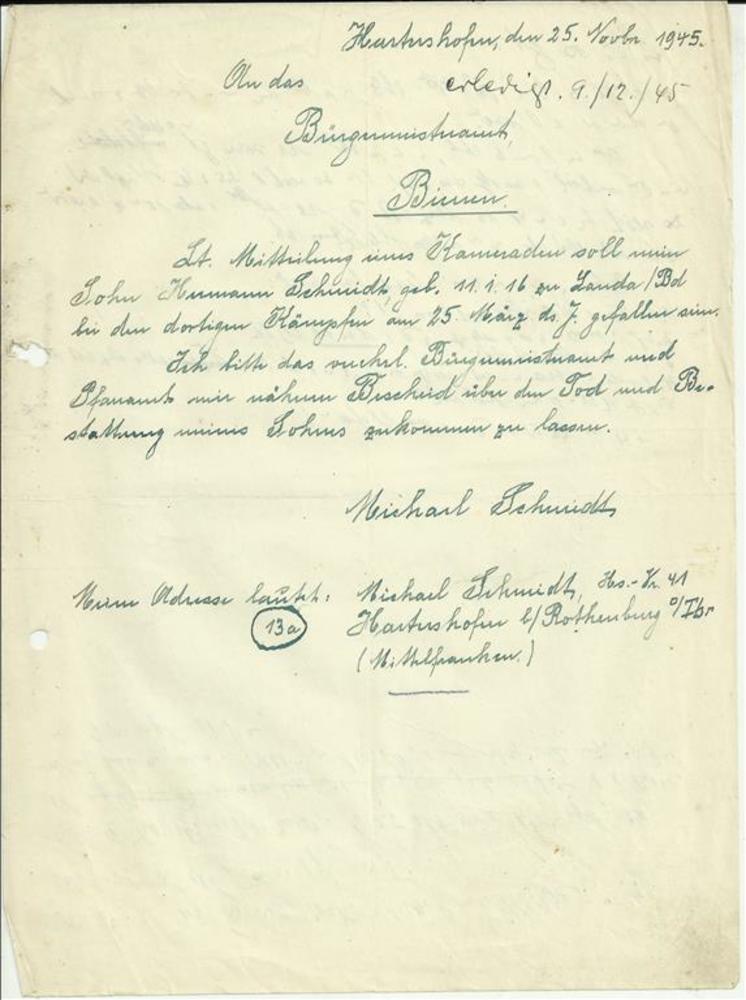 Hartershofen, den 25. Novbr. 1945.
An das erledigt. 9./12./45
Bürgermeisteramt,
Bienen.
Lt. Mitteilung eines Kameraden soll mein
Sohn Hermann Schmidt, geb. 11.1.16 zu Lauda/Bd
bei den dortigen Kämpfen am 25. März ds. J. gefallen sein.
Ich bitte das verehrl. Bürgermeisteramt und
Pfarramt mir nähern Bescheid über den Tod und Be-
stattung meines Sohnes zukommen zu lassen.
Michael Schmidt
Meine Adresse lautet: Michael Schmidt, Hs.-Nr. 41
13a Hartershofen b/Rothenburg o/Tbr
(Mittelfranken.)